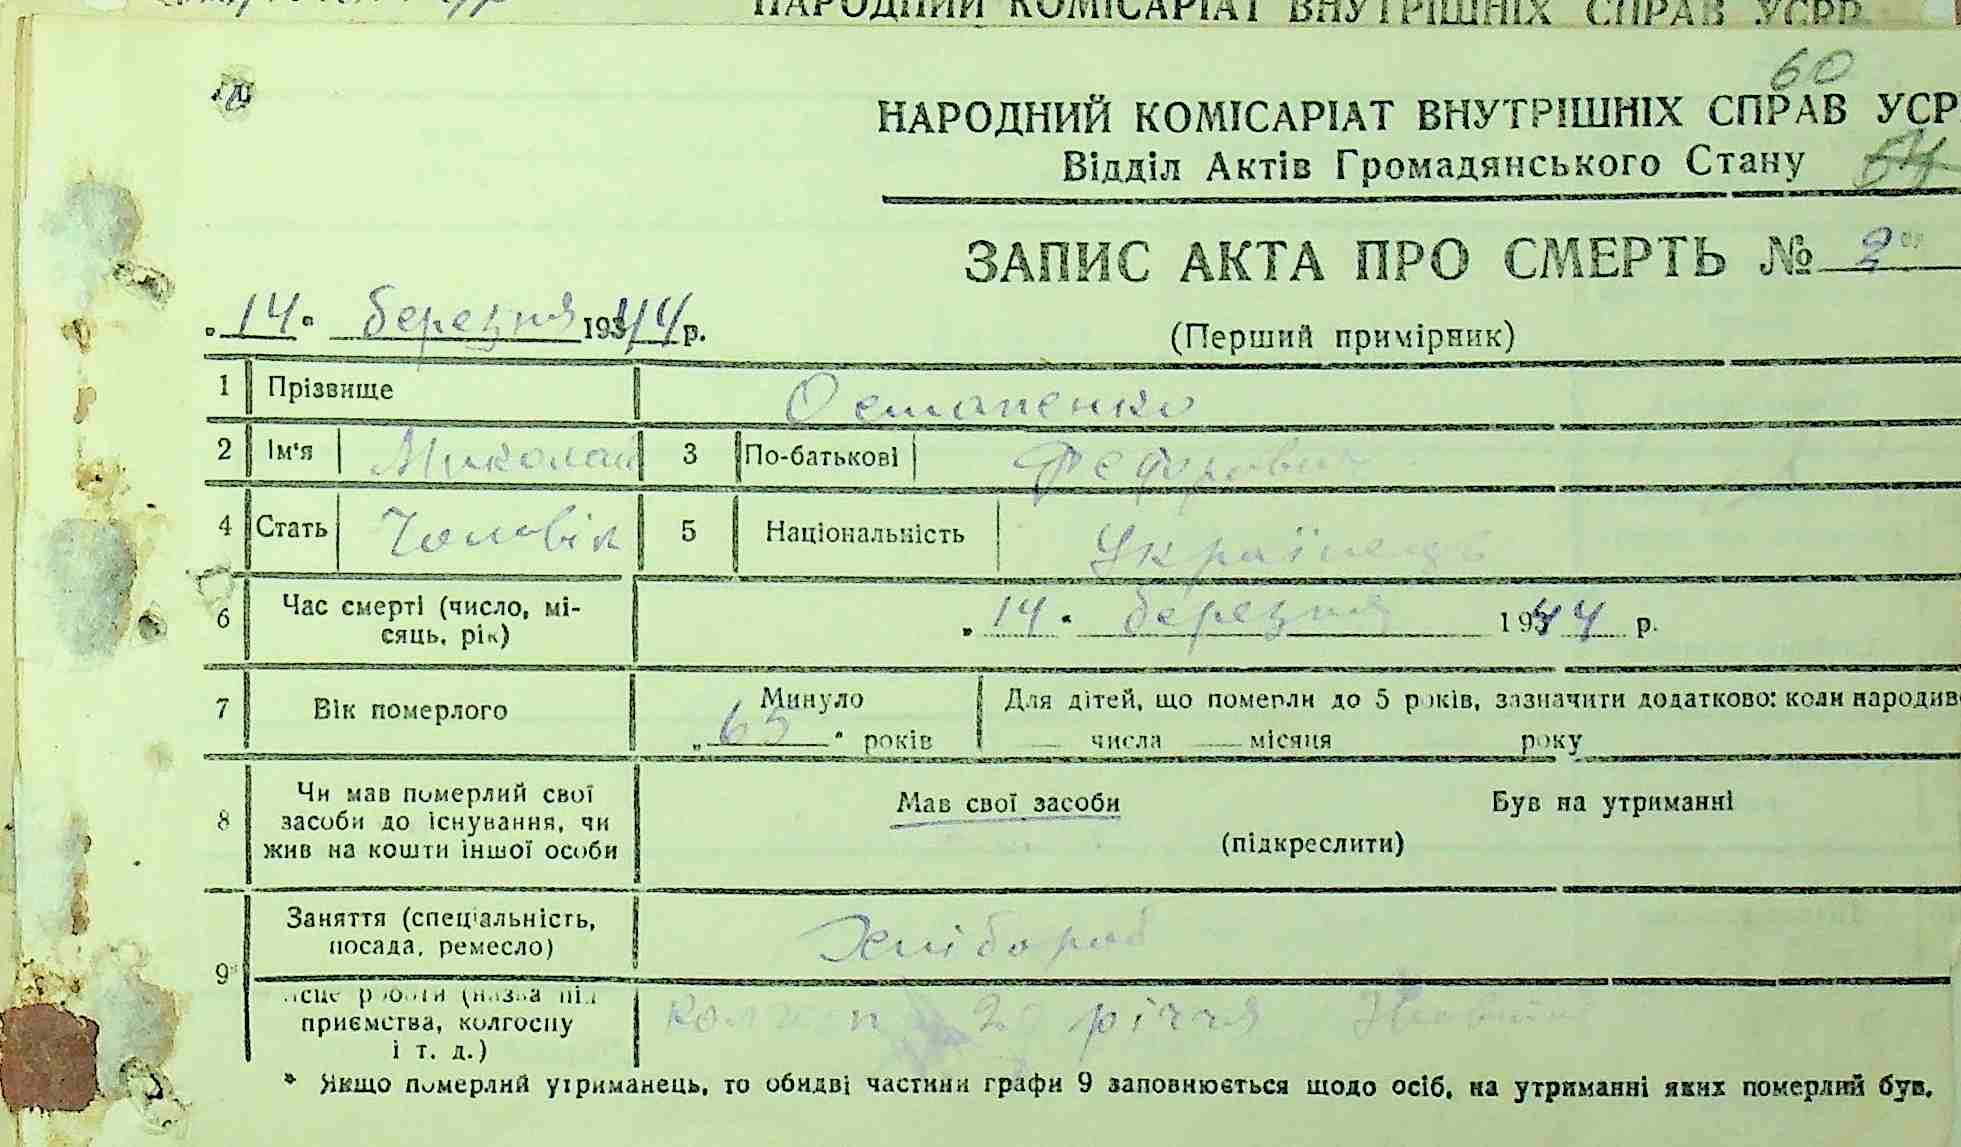 НАРОДНИЙ КОМІСАРІАТ ВНУТРІШНІХ СПРАВ УСРР
60
НАРОДНИЙ КОМІСАРІАТ ВНУТРІШНІХ СПРАВ УСР
Відділ Актів Громадянського Стану 54
ЗАПИС АКТА ПРО СМЕРТЬ № 2
„14" березня 1944 р.
(Перший примірник)
1 Прізвище Остапенко
2 Ім'я Миколай 3 По-батькові Федорович
4 Стать Чоловік 5 Національність Українець
6 Час смерті (число, мі-
сяць, рік) „14" березня 1944 р.
7 Вік померлого Минуло „65" років Для дітей, що померли до 5 років, зазначити додатково: коли народив
числа місяця року
8 Чи мав померлий свої
засоби до існування, чи
жив на кошти іншої особи
Мав свої засоби Був на утриманні
(підкреслити)
9* Заняття (спеціальність,
посада, ремесло) Хлібороб
місце роботи (назва під
приємства, колгоспу
і т. д.) колгосп 20 річчя Жовтня
* Якщо померлий утриманець, то обидві частини графи 9 заповнюється щодо осіб, на утриманні яких померлий був.